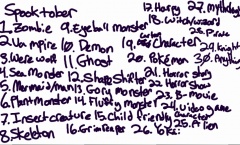 Spooktober
1. Zombie
2. Vampire
3. Werewolf
4. Sea Monster
5. Mermaid/man
6. Plant monster
7. Insect creature
8. Skeleton
9. Eyeball monster
10. Demon
11. Ghost
12. Shapeshifter
13. Gory monster
14. Fluffy monster
15. Child friendly character
16. Grim Reaper
17. Harpy
18. Witch/wizard
19. Cartoon character
20. Pokémon
21. Horror story
22. Horror show
23. B-movie
24. Video game
25. Alien
26.
27. mythology